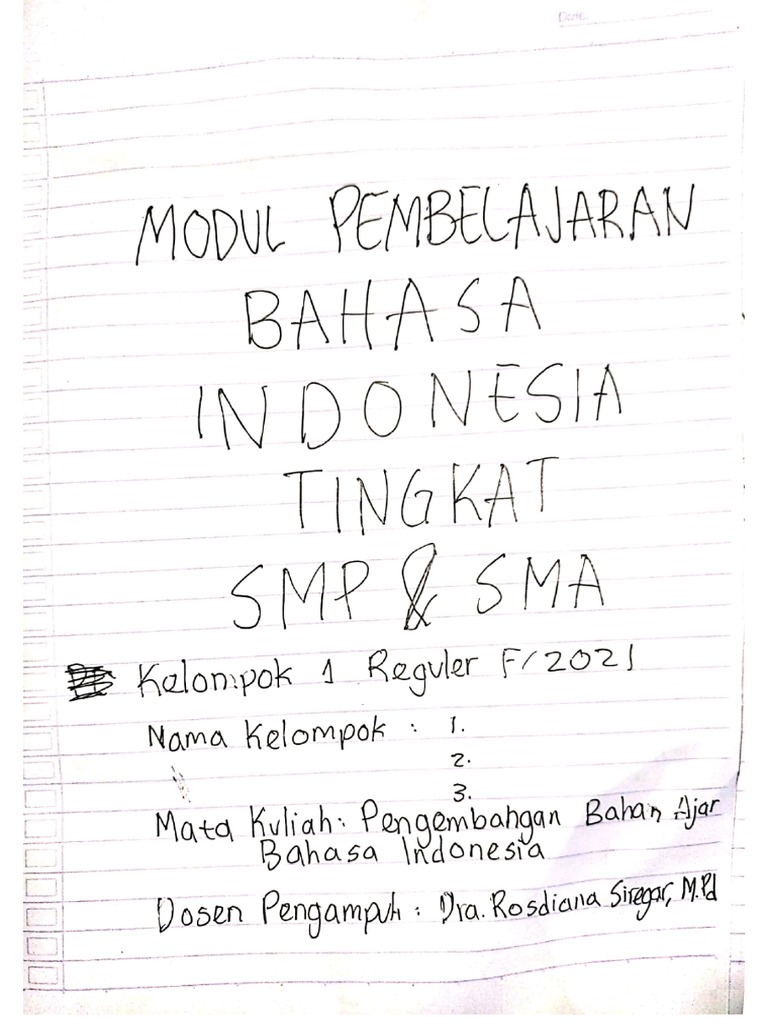 MODUL PEMBELAJARAN
BAHASA
INDONESIA
TINGKAT
SMP & SMA
Kelompok 1 Reguler F/2021
Nama Kelompok : 1.
2.
3.
Mata Kuliah: Pengembangan Bahan Ajar
Bahasa Indonesia
Dosen Pengampuh : Dra. Rosdiana Siregar, M.Pd